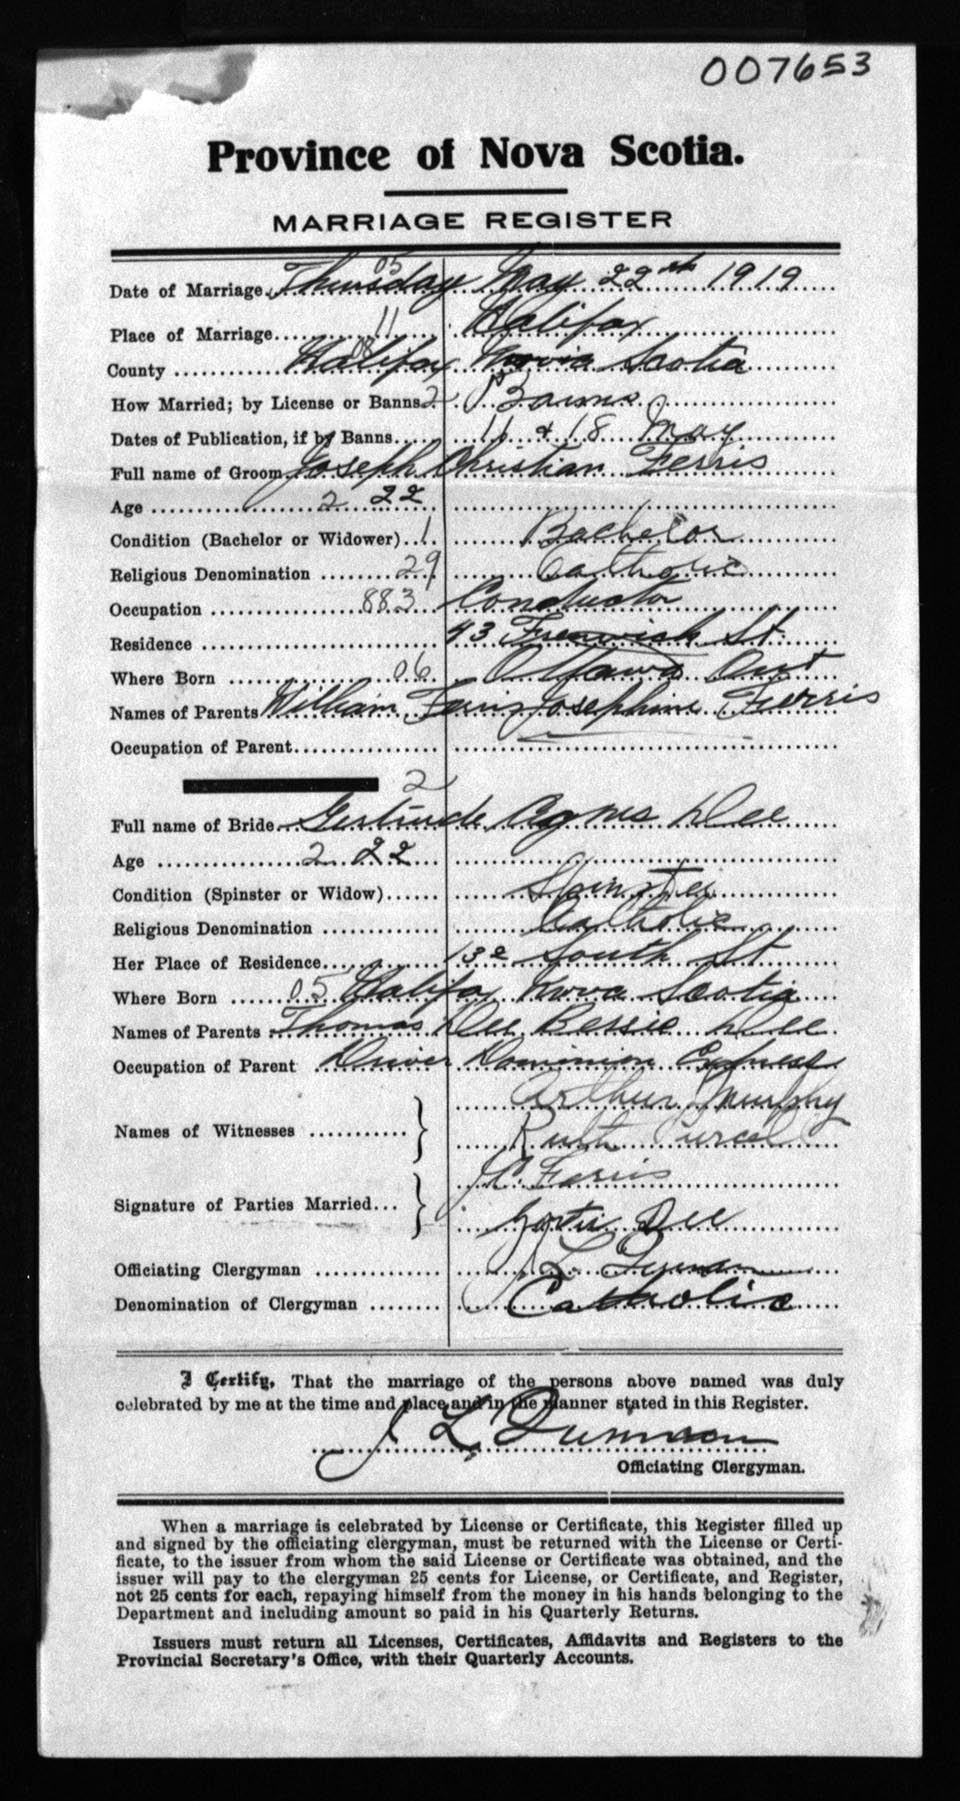 007653
Province of Nova Scotia.
MARRIAGE REGISTER
05
Date of Marriage Thursday May 22nd 1919
Place of Marriage 11 Halifax
08
County Halifax Nova Scotia
How Married; by License or Banns 2 Banns
Dates of Publication, if by Banns 11 & 18 May
Full name of Groom Joseph Christian Ferris
Age 2 22
Condition (Bachelor or Widower) 1 Bachelor
Religious Denomination 29 Catholic
Occupation 883 Conductor
Residence 43 Fenwick St
Where Born 06 Ottawa Ont
Names of Parents William Ferris Josephine Ferris
Occupation of Parent
2
Full name of Bride Gertrude Agnes Dee
Age 2 22
Condition (Spinster or Widow) Spinster
Religious Denomination Catholic
Her Place of Residence 132 South St
Where Born 05 Halifax Nova Scotia
Names of Parents Thomas Dee Bessie Dee
Occupation of Parent Driver Dominion Express
Arthur Murphy
Names of Witnesses
Ruth Purcell
J.C. Ferris
Signature of Parties Married
Dee
Officiating Clergyman J L
Denomination of Clergyman Catholic
I Certify, That the marriage of the persons above named was duly
celebrated by me at the time and place and in the manner stated in this Register.
J L
Officiating Clergyman.
When a marriage is celebrated by License or Certificate, this Register filled up
and signed by the officiating clergyman, must be returned with the License or Certi-
ficate, to the issuer from whom the said License or Certificate was obtained, and the
issuer will pay to the clergyman 25 cents for License, or Certificate, and Register,
not 25 cents for each, repaying himself from the money in his hands belonging to the
Department and including amount so paid in his Quarterly Returns.
Issuers must return all Licenses, Certificates, Affidavits and Registers to the
Provincial Secretary's Office, with their Quarterly Accounts.